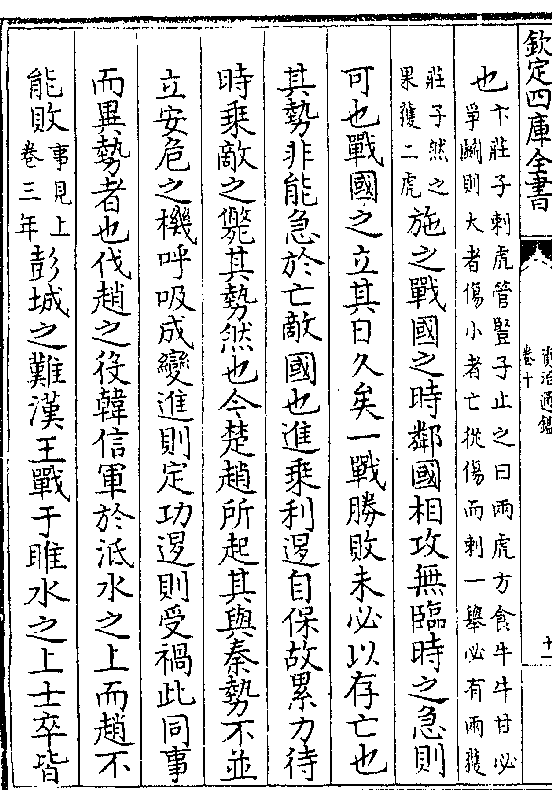 欽定四庫全書
資治通鑑
卷十
也
卞莊子刺虎管豎子止之曰兩虎方食牛牛甘必
爭鬭則大者傷小者亡從傷而刺一舉必有兩獲
莊子然之
果獲二虎
施之戰國之時鄰國相攻無臨時之急則
可也戰國之立其日久矣一戰勝敗未必以存亡也
其勢非能急於亡敵國也進乗利退自保故累力待
時乗敵之斃其勢然也今楚趙所起其與秦勢不並
立安危之機呼吸成變進則定功退則受禍此同事
而異勢者也伐趙之役韓信軍於泜水之上而趙不
能敗
事見上
卷三年
彭城之難漢王戰于睢水之上士卒皆